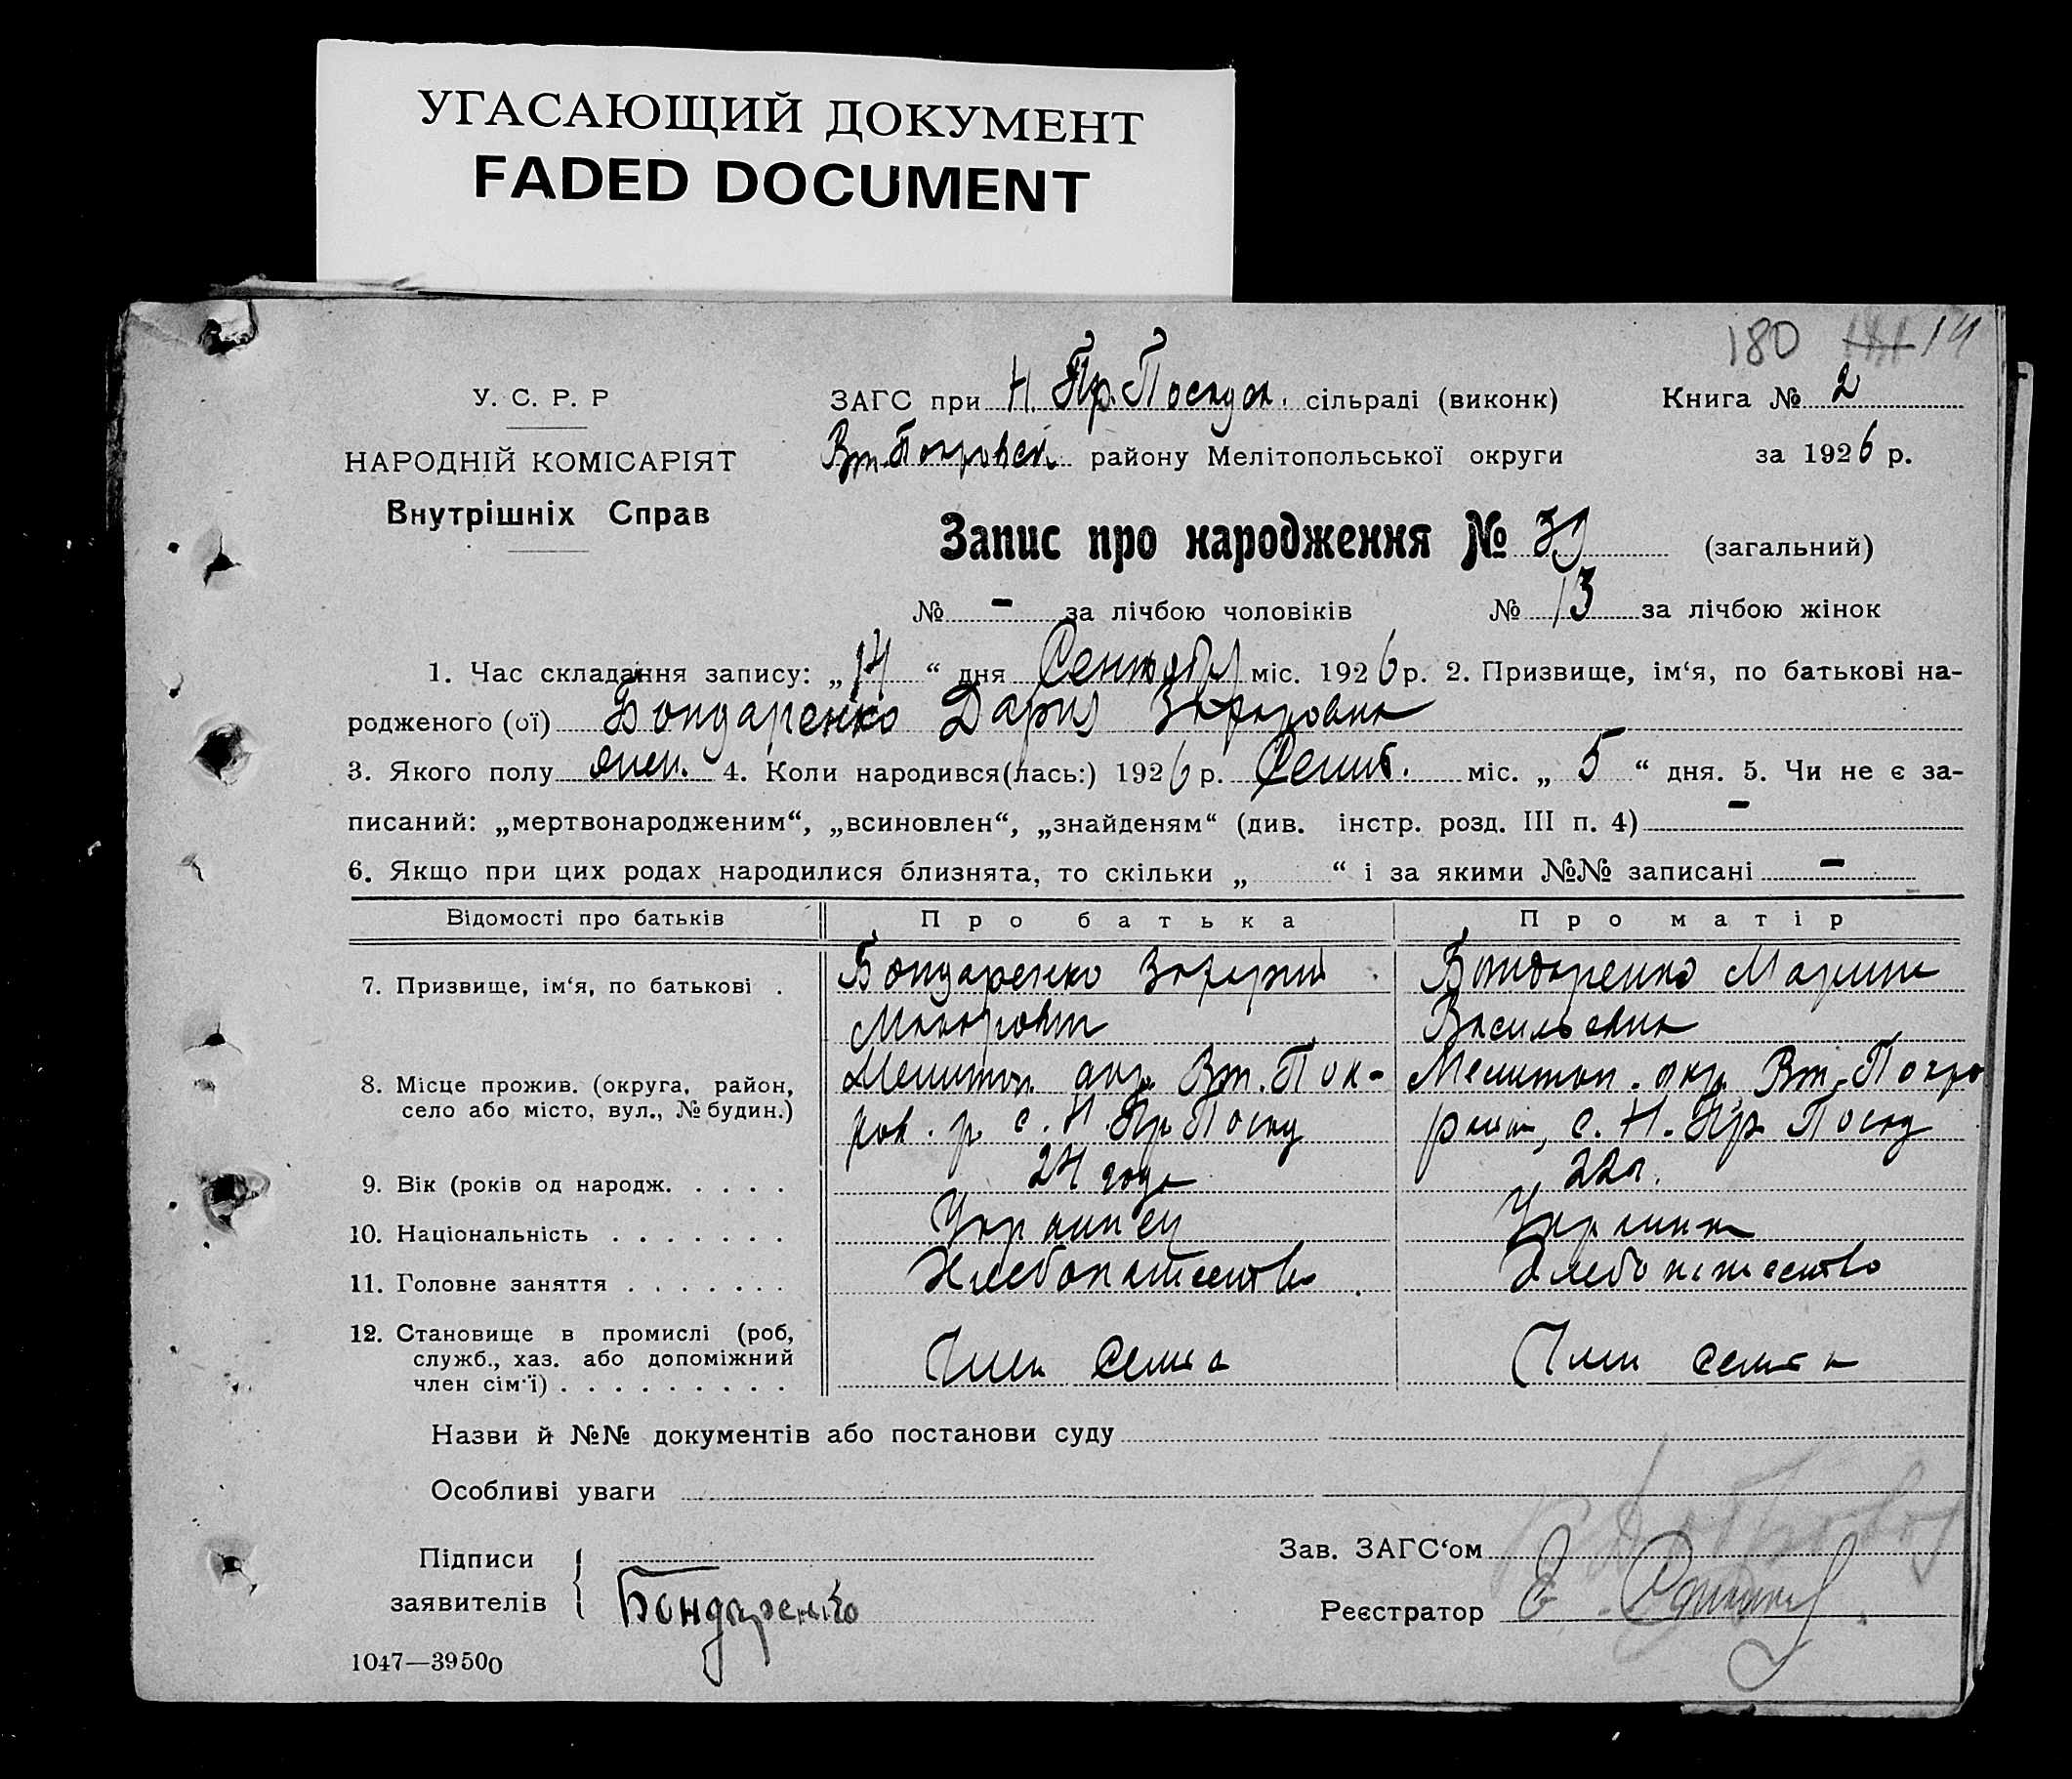 УГАСАЮЩИЙ ДОКУМЕНТ
FADED DOCUMENT
180 14
У. С. Р. Р
НАРОДНІЙ КОМІСАРІЯТ
Внутрішніх Справ
ЗАГС при Н. Пр. Посад. сільраді (виконк)
Вт-Покровск району Мелітопольської округи
Книга № 2
за 1926 р.
Запис про народження № (загальний)
№ - за лічбою чоловіків № 13 за лічбою жінок
1. Час складання запису: „14“ дня Сентября міс. 1926 р. 2. Призвище, ім‘я, по батькові на-
родженого (ої) Бондаренко Дария Захаровна
3. Якого полу жен. 4. Коли народився(лась:) 1926 р. Сентб. міс. „5“ дня. 5. Чи не є за-
писаний: „мертвонародженим“, „всиновлен“, „знайденям“ (див. інстр. розд. III п. 4) -
6. Якщо при цих родах народилися близнята, то скільки „ “ і за якими №№ записані -
Відомості про батьків Про батька Про матір
7. Призвище, ім‘я, по батькові . Бондаренко Захарий Макарович Бондаренко Мария Васильевна
8. Місце прожив. (округа, район, село або місто, вул., № будин.) Мелитоп. окр. Вт. Пок-ров. р. с. Н. Пр. Посад Мелитоп. окр. Вт. Покро район, с. Н. Пр. Посад
9. Вік (років од народж. . . . . 24 года 22 г.
10. Національність . . . . . . . Украинец Украинка
11. Головне заняття . . . . . . . Хлебопашество Хлебопашество
12. Становище в промислі (роб, служб., хаз. або допоміжний член сім‘ї) . . . . . . . . . Член семьи Член семьи
Назви й №№ документів або постанови суду
Особливі уваги
Підписи
заявителів
Бондаренко
Зав. ЗАГС‘ом
Реєстратор
1047—39500